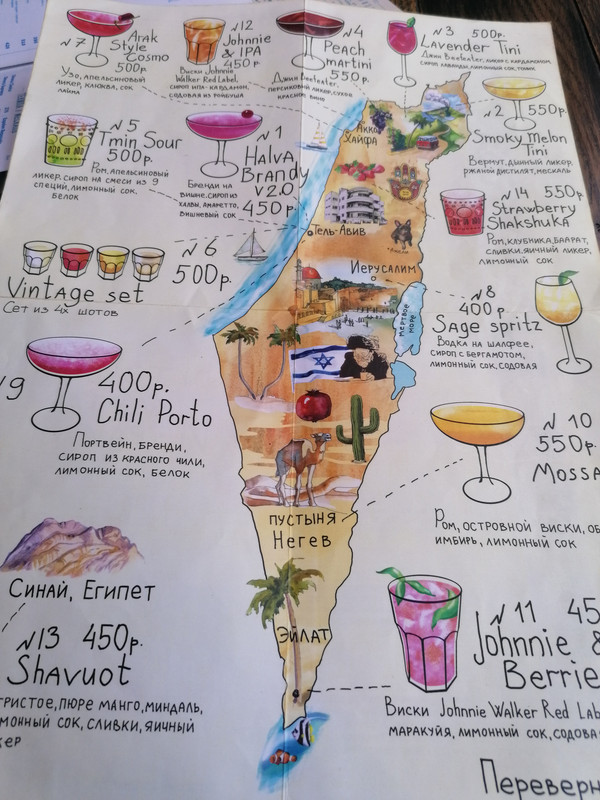 N7 Arak
Style
Cosmo
500р.
Узо, апельсиновый
ликер, клюква, сок
лайма
N12
Johnnie
& IPA
450р
Виски Johnnie
Walker Red Label,
сироп ипа-кардамон,
содовая из ройбуша
N4
Peach
martini
550р.
Джин Beefeater,
персиковый ликер, сухое
красное вино
N3 500р.
Lavender Tini
Джин Beefeater, ликер с кардамоном,
сироп лаванды, лимонный сок, тоник
N2 550р.
Smoky Melon
Tini
Вермут, дынный ликер,
ржаной дистилят, мескаль
N5
Tmin Sour
500р.
Ром, апельсиновый
ликер, сироп на смеси из 9
специй, лимонный сок,
белок
N1
Halva
Brandy
v2.0
450р.
Бренди на
вишне, сироп из
халвы, амаретто,
вишневый сок
Акко
Хайфа
N14 550р.
Strawberry
Shakshuka
Ром, клубника, баарат,
сливки, яичный ликер,
лимонный сок
Тель-Авив
Иерусалим
мертвое
море
N6
500р.
Vintage set
Сет из 4х шотов
N8
400р.
Sage spritz
Водка на шалфее,
сироп с бергамотом,
лимонный сок, содовая
9
400р.
Chili Porto
Портвейн, бренди,
сироп из красного чили,
лимонный сок, белок
N10
550р.
Mossa
Ром, островной виски, об
имбирь, лимонный сок
пустыня
Негев
Синай, Египет
Эйлат
N13 450р.
Shavuot
гристое, пюре манго, миндаль,
монный сок, сливки, яичный
кер
N11 45
Johnnie &
Berrie
Виски Johnnie Walker Red Lab
маракуйя, лимонный сок, содова
Переверн